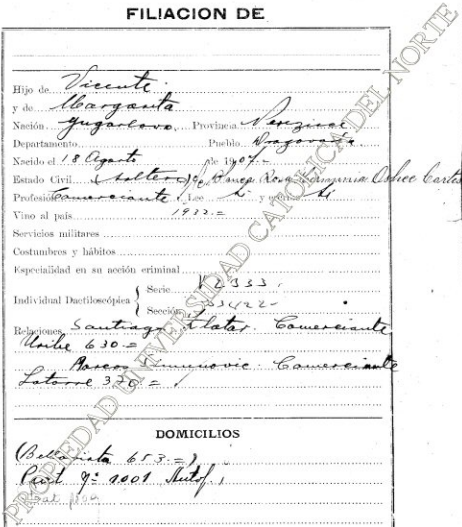 FILIACION DE
Hijo de Vicente
y de Margarita
Nación Yugoeslavo Provincia
Departamento Pueblo
Nacido el 18 Agosto de 1907.-
Estado Civil (soltero) Blanca Rosa
Profesión Comerciante Lee si y si
Vino al país 1922.=
Servicios militares
Costumbres y hábitos
Especialidad en su acción criminal
Individual Dactiloscópica { Serie V2333
Sección 33422-
Relaciones Santiago Zlatar. Comerciante
Uribe 630.=
Marcos Simunovic. Comerciante
Latorre 370.=
DOMICILIOS
(Bellavista 653.=)
Prat Nº 1001 Antof.
PROPIEDAD UNIVERSIDAD CATOLICA DEL NORTE